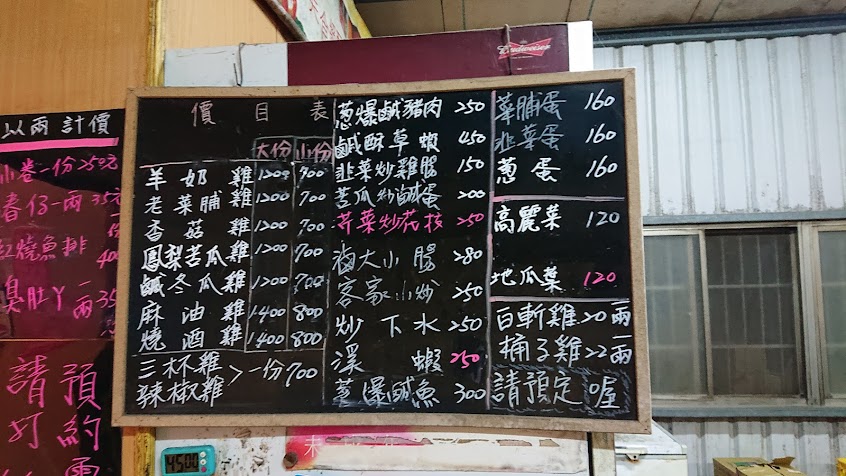 Budweiser
以兩計價
小卷一份250元
春仔一兩35元
紅燒魚排一份400
臭肚丫一兩35
請預
打約
電
價目表
大份 小份
羊奶雞 1200 700
老菜脯雞 1200 700
香菇雞 1200 700
鳳梨苦瓜雞 1200 700
鹹冬瓜雞 1200 700
麻油雞 1400 800
燒酒雞 1400 800
三杯雞
辣椒雞 > 一份700
蔥爆鹹豬肉 250
鹹酥草蝦 450
韭菜炒雞腸 150
苦瓜炒鹹蛋 200
芹菜炒花枝 250
滷大小腸 280
客家小炒 250
炒下水 250
溪蝦 250
蔥爆鹹魚 300
菜脯蛋 160
韭菜蛋 160
蔥蛋 160
高麗菜 120
地瓜菜 120
白斬雞 20一兩
桶子雞 22一兩
請預定喔
4500